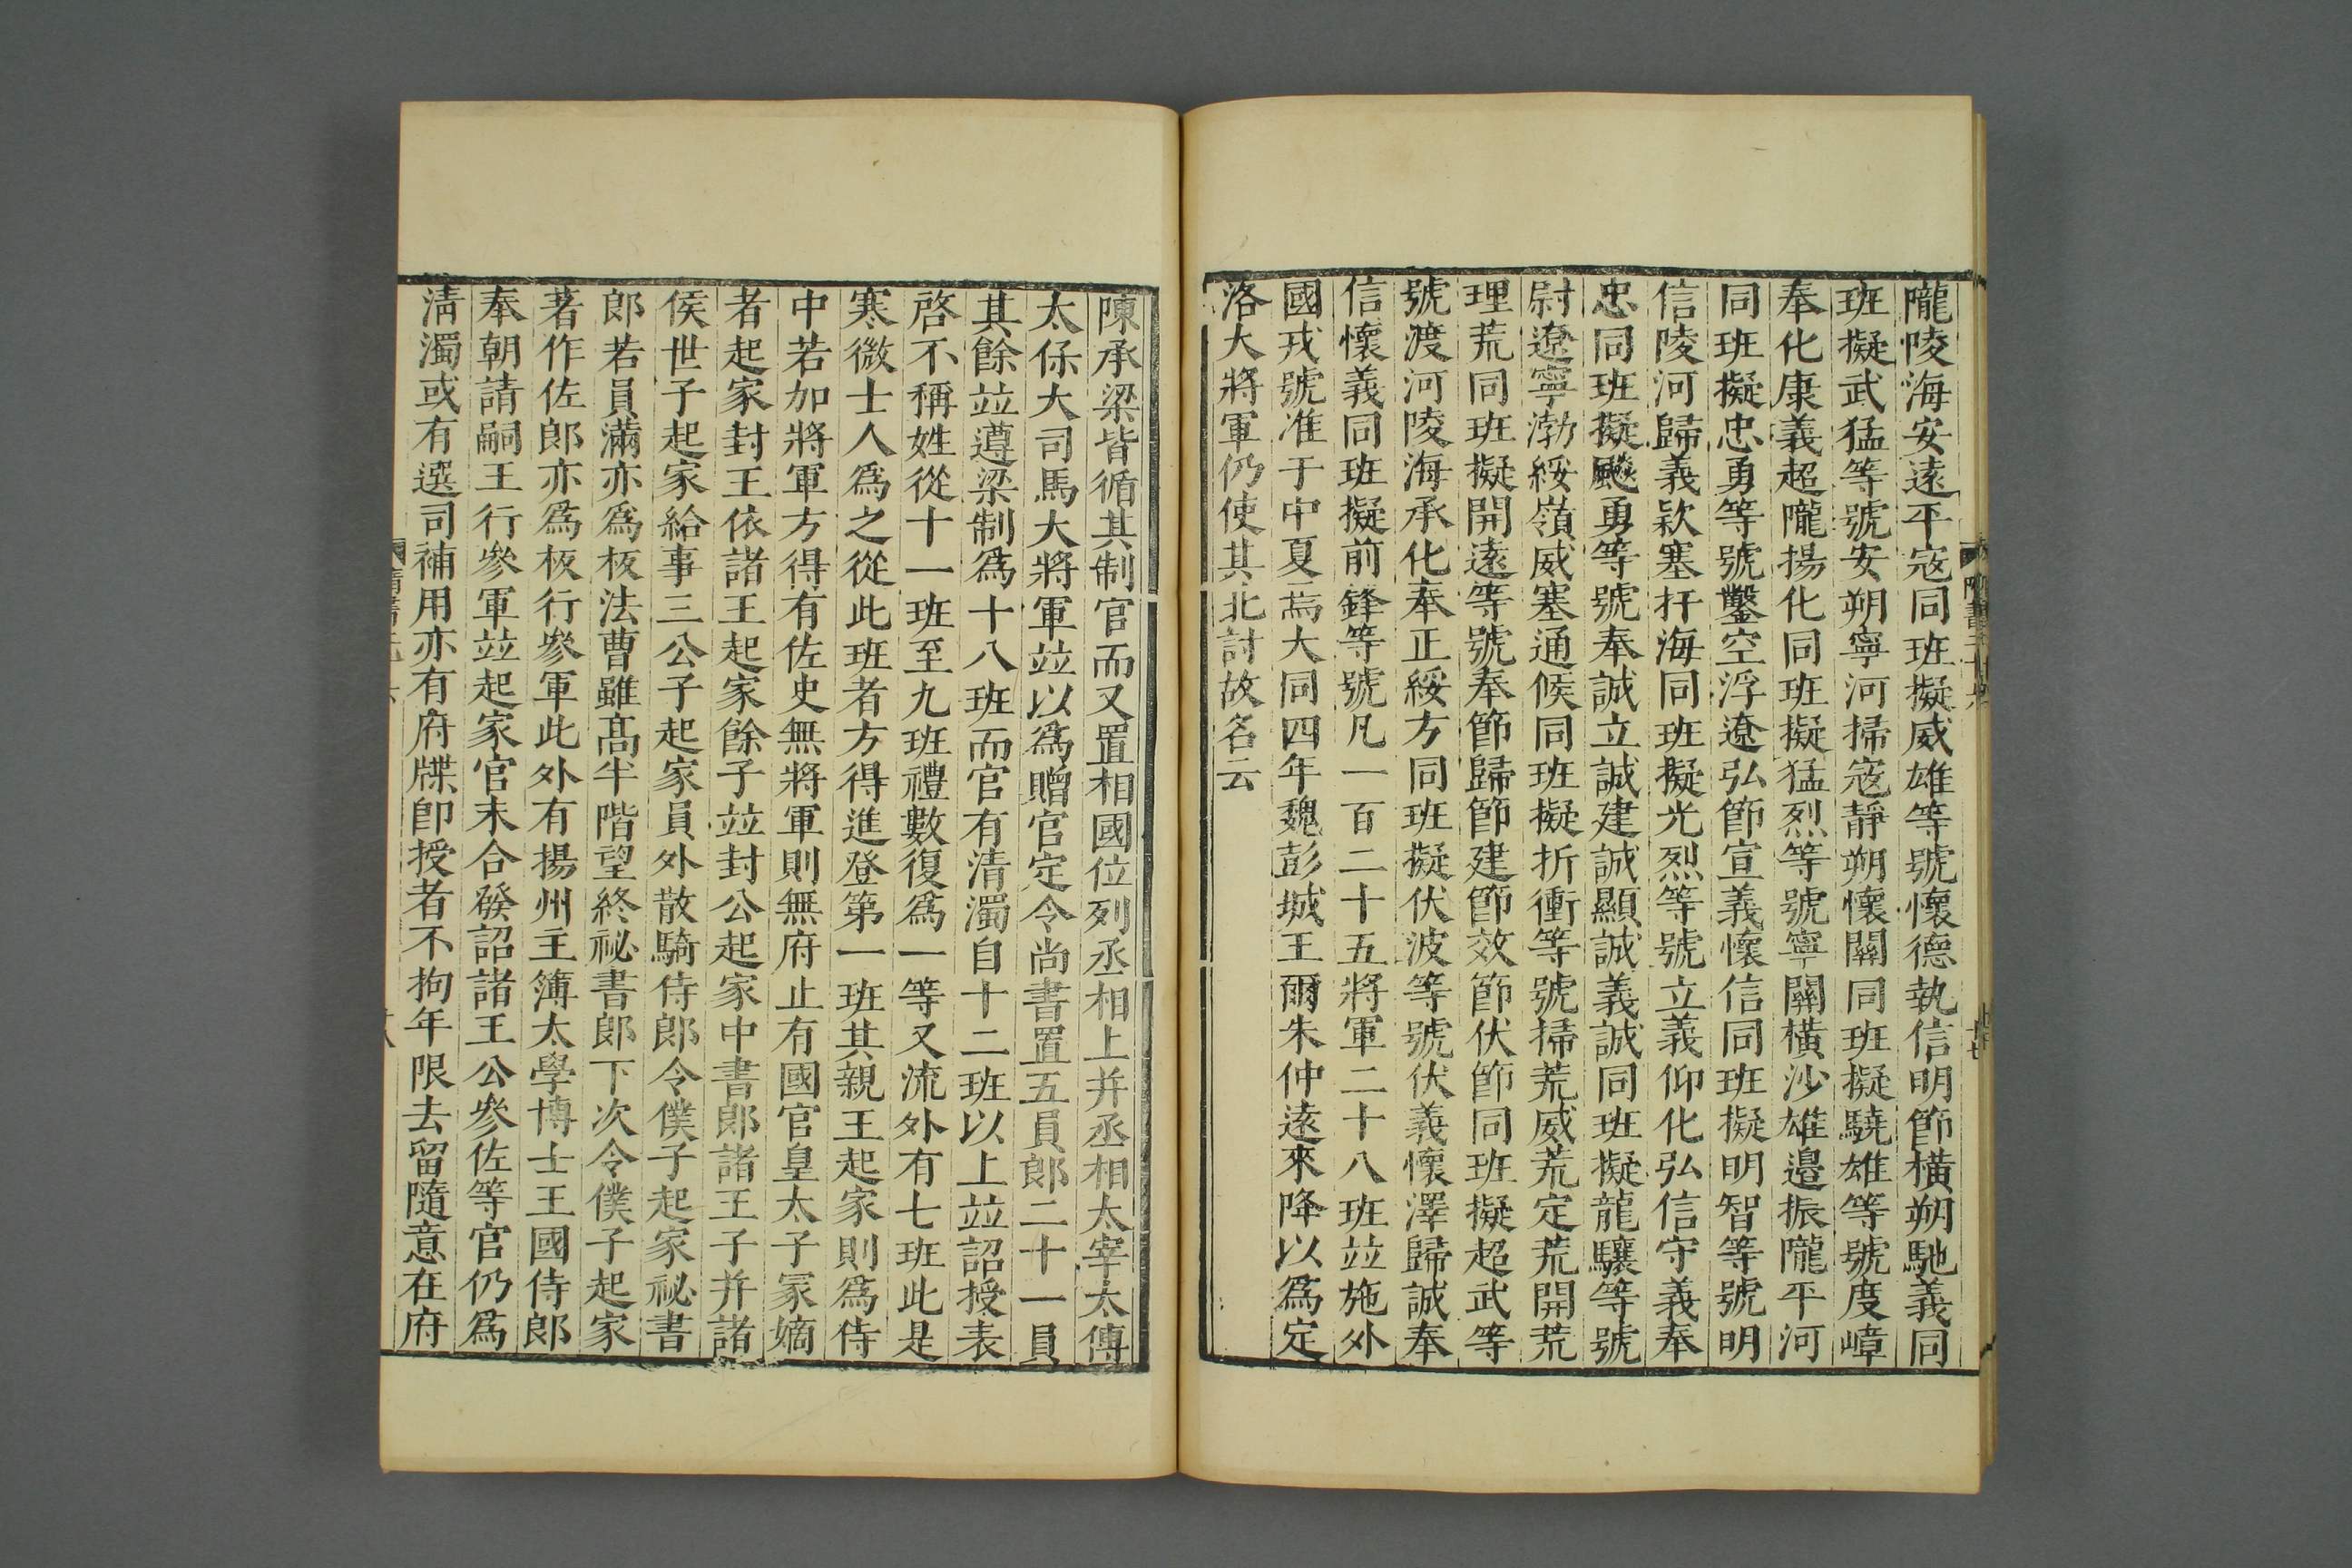 隴陵海安遠平寇同班擬威雄等號懷德執信明節橫朔馳義同
班擬武猛等號安朔寧河掃寇靜朔懷關同班擬驍雄等號度嶂
奉化康義超隴揚化同班擬猛烈等號寧關橫沙雄邊振隴平河
同班擬忠勇等號鑿空浮遼弘節宣義懷信同班擬明智等號明
信陵河歸義款塞扞海同班擬光烈等號立義仰化弘信守義奉
忠同班擬飈勇等號奉誠立誠建誠顯誠義誠同班擬龍驤等號
尉遼寧渤綏嶺威塞通候同班擬折衝等號掃荒威荒定荒開荒
理荒同班擬開遠等號奉節歸節建節效節伏節同班擬超武等
號渡河陵海承化奉正綏方同班擬伏波等號伏義懷澤歸誠奉
信懷義同班擬前鋒等號凡一百二十五將軍二十八班竝施外
國戎號准于中夏焉大同四年魏彭城王爾朱仲遠來降以爲定
洛大將軍仍使其北討故名云
陳承梁皆循其制官而又置相國位列丞相上并丞相太宰太傅
太保大司馬大將軍竝以爲贈官定令尚書置五員郎二十一員
其餘竝遵梁制爲十八班而官有清濁自十二班以上竝詔授表
啓不稱姓從十一班至九班禮數復爲一等又流外有七班此是
寒微士人爲之從此班者方得進登第一班其親王起家則爲侍
中若加將軍方得有佐史無將軍則無府止有國官皇太子冢嫡
者起家封王依諸王起家餘子竝封公起家中書郎諸王子并諸
侯世子起家給事三公子起家員外散騎侍郎令僕子起家祕書
郎若員滿亦爲板法曹雖高半階望終祕書郎下次令僕子起家
著作佐郎亦爲板行參軍此外有揚州主簿太學博士王國侍郎
奉朝請嗣王行參軍竝起家官未合發詔諸王公參佐等官仍爲
清濁或有選司補用亦有府牒卽授者不拘年限去留隨意在府